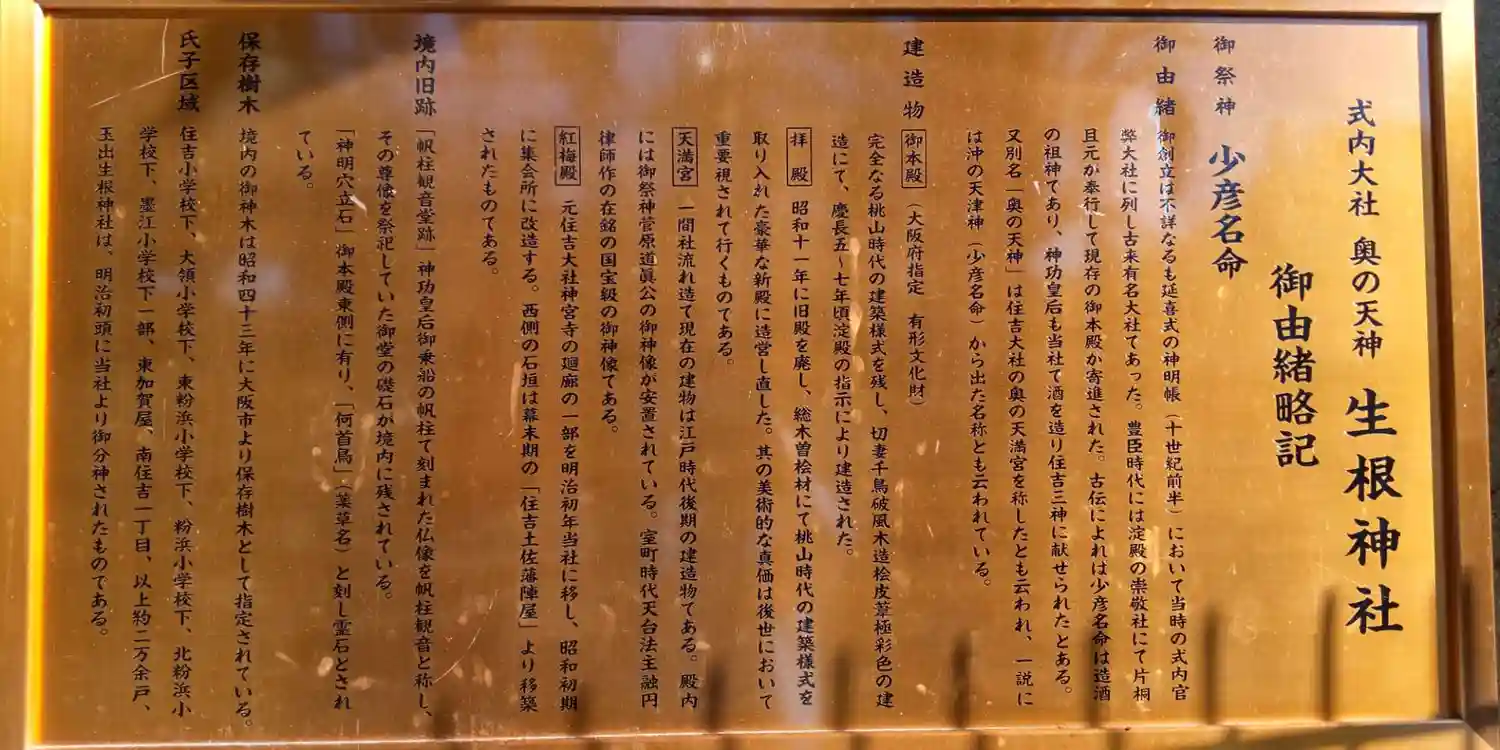 式内大社 奥の天神 生根神社
御由緒略記
御祭神 少彦名命
御由緒 御創立は不詳なるも延喜式の神明帳(十世紀前半)において当時の式内官
弊大社に列し古来有名大社てあった。豊臣時代には淀殿の崇敬社にて片桐
且元が奉行して現存の御本殿か寄進された。古伝によれは少彦名命は造酒
の祖神てあり、神功皇后も当社て酒を造り住吉三神に献せられたとある。
又別名「奥の天神」は住吉大社の奥の天満宮を称したとも云われ、一説に
は沖の天津神(少彦名命)から出た名称とも云われている。
建造物 御本殿 (大阪府指定 有形文化財)
完全なる桃山時代の建築様式を残し、切妻千鳥破風木造桧皮葺極彩色の建
造にて、慶長五~七年頃淀殿の指示により建造された。
拝殿 昭和十一年に旧殿を廃し、総木曽桧材にて桃山時代の建築様式を
取り入れた豪華な新殿に造営し直した。其の美術的な真価は後世において
重要視されて行くものてある。
天満宮 一間社流れ造て現在の建物は江戸時代後期の建造物てある。殿内
には御祭神菅原道眞公の御神像が安置されている。室町時代天台法主融円
律師作の在銘の国宝級の御神像てある。
紅梅殿 元住吉大社神宮寺の廻廊の一部を明治初年当社に移し、昭和初期
に集会所に改造する。西側の石垣は幕末期の「住吉土佐藩陣屋」より移築
されたものてある。
境内旧跡 「帆柱観音堂跡」神功皇后御乗船の帆柱て刻まれた仏像を帆柱観音と称し、
その尊像を祭祀していた御堂の礎石が境内に残されている。
「神明穴立石」御本殿東側に有り、「何首烏」(薬草名)と刻し霊石とされ
ている。
保存樹木 境内の御神木は昭和四十三年に大阪市より保存樹木として指定されている。
氏子区域 住吉小学校下、大領小学校下、東粉浜小学校下、粉浜小学校下、北粉浜小
学校下、墨江小学校下一部、東加賀屋、南住吉一丁目、以上約二万余戸、
玉出生根神社は、明治初頭に当社より御分神されたものてある。